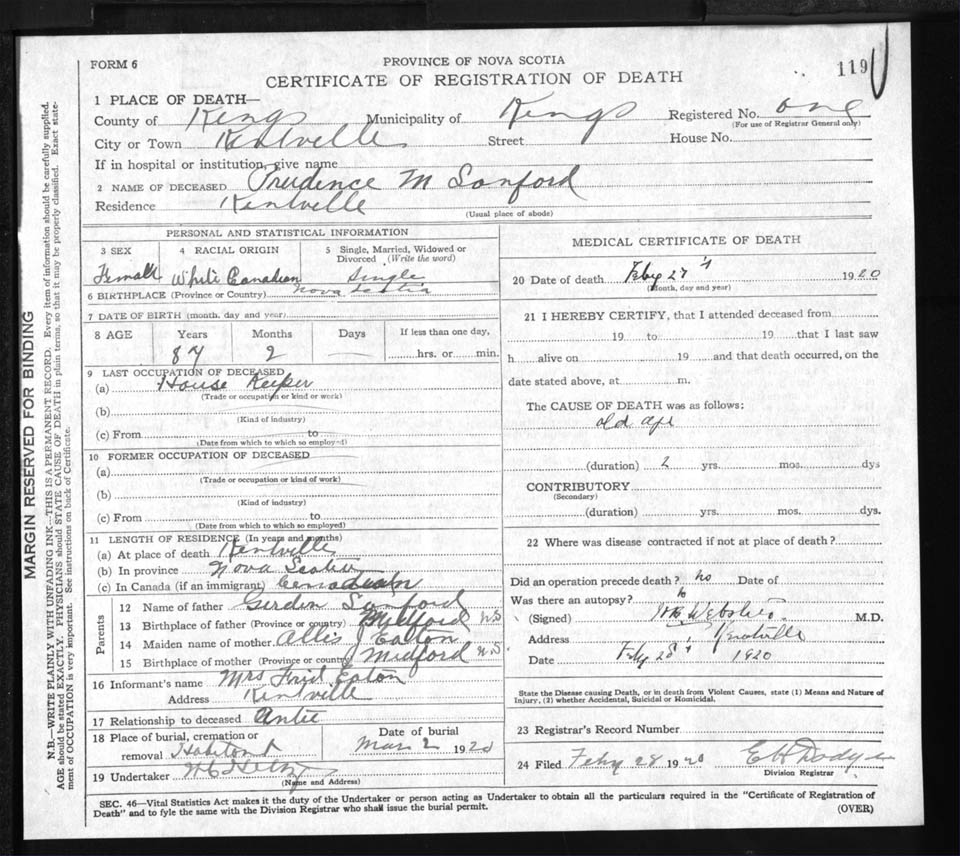 FORM 6
PROVINCE OF NOVA SCOTIA
119
CERTIFICATE OF REGISTRATION OF DEATH
1 PLACE OF DEATH—
County of Kings Municipality of Kings Registered No. one
(For use of Registrar General only)
City or Town Kentville Street House No.
If in hospital or institution, give name
2 NAME OF DECEASED Prudence M Sanford
Residence Kentville
(Usual place of abode)
PERSONAL AND STATISTICAL INFORMATION
3 SEX 4 RACIAL ORIGIN 5 Single, Married, Widowed or Divorced (Write the word)
Female White Canadian Single
6 BIRTHPLACE (Province or Country) Nova Scotia
7 DATE OF BIRTH (month, day and year)
8 AGE Years Months Days If less than one day,
87 2 hrs. or min.
9 LAST OCCUPATION OF DECEASED
(a) House Keeper
(Trade or occupation or kind or work)
(b)
(Kind of industry)
(c) From to
(Date from which to which so employed)
10 FORMER OCCUPATION OF DECEASED
(a)
(Trade or occupation or kind of work)
(b)
(Kind of industry)
(c) From to
(Date from which to which so employed)
11 LENGTH OF RESIDENCE (In years and months)
(a) At place of death Kentville
(b) In province Nova Scotia
(c) In Canada (if an immigrant) Canadian
Parents
12 Name of father Sanford
13 Birthplace of father (Province or country) Midford NS
14 Maiden name of mother Allis J Eaton
15 Birthplace of mother (Province or country Midford NS
16 Informant's name Mrs Frid Eaton
Address Kentville
17 Relationship to deceased Antie
18 Place of burial, cremation or removal
Date of burial
Mar 2 1920
19 Undertaker
(Name and Address)
MEDICAL CERTIFICATE OF DEATH
20 Date of death Feby 27 1920
(Month, day and year)
21 I HEREBY CERTIFY, that I attended deceased from
19 to 19 that I last saw
h alive on 19 and that death occurred, on the
date stated above, at m.
The CAUSE OF DEATH was as follows:
old age
(duration) 2 yrs. mos. dys
CONTRIBUTORY
(Secondary)
(duration) yrs. mos. dys.
22 Where was disease contracted if not at place of death?
Did an operation precede death? no Date of
Was there an autopsy? no
(Signed) Webster M.D.
Address Kentville
Date Feby 28 1920
State the Disease causing Death, or in death from Violent Causes, state (1) Means and Nature of
Injury, (2) whether Accidental, Suicidal or Homicidal.
23 Registrar's Record Number
24 Filed Feby 28 1920 Dodge
Division Registrar
SEC. 46—Vital Statistics Act makes it the duty of the Undertaker or person acting as Undertaker to obtain all the particulars required in the "Certificate of Registration of
Death" and to fyle the same with the Division Registrar who shall issue the burial permit.
(OVER)
MARGIN RESERVED FOR BINDING
N.B.—WRITE PLAINLY WITH UNFADING INK—THIS IS A PERMANENT RECORD. Every item of information should be carefully supplied.
AGE should be stated EXACTLY. PHYSICIANS should STATE CAUSE OF DEATH in plain terms, so that it may be properly classified. Exact statement
of OCCUPATION is very important. See instructions on back of Certificate.